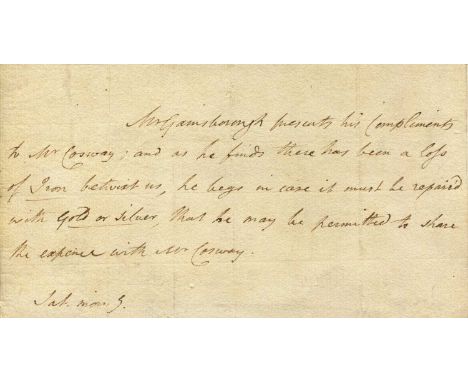 Mr Gainsborough presents his Compliments
to Mr Cosway; and as he finds there has been a Loss
of Iron betwixt us, he begs in case it must be repaired
with Gold or Silver, that he may be permitted to share
the expence with Mr Cosway.
Sat. morng.